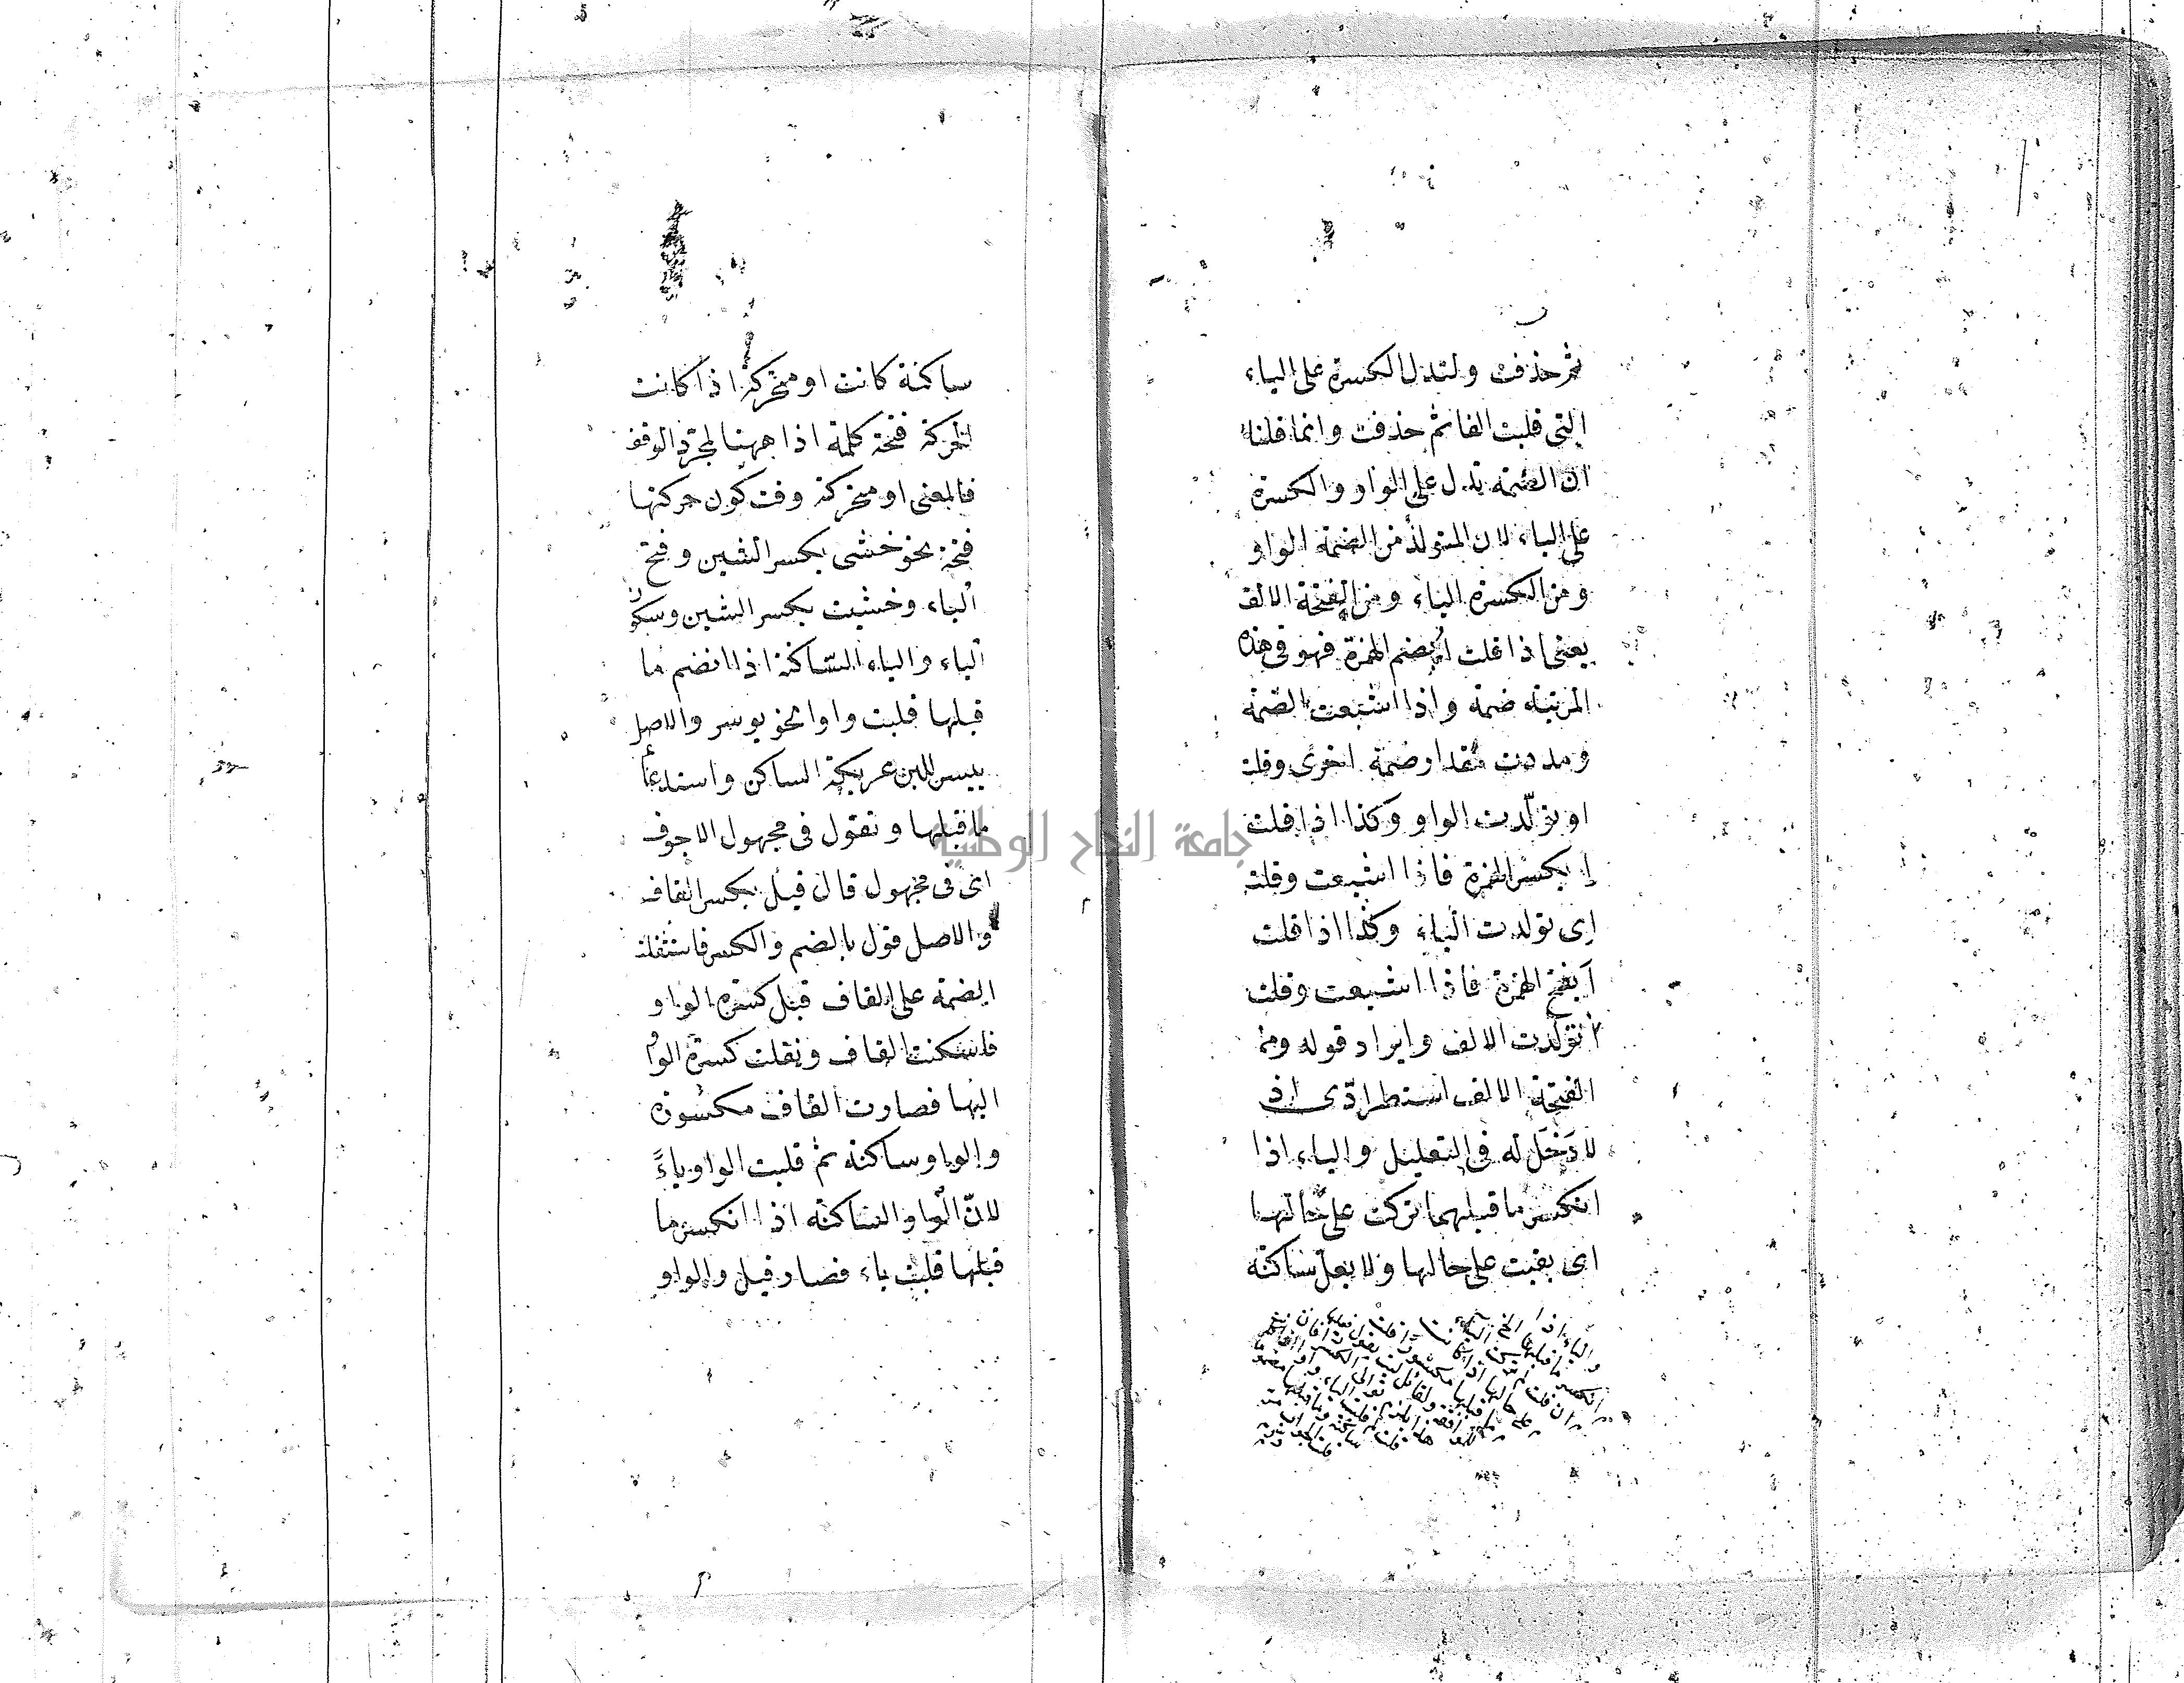 ثم حذفت ولتدل الكسرة على الياء
التى قلبت الفا ثم حذفت وانما قلنا
ان الضمة تدل على الواو والكسرة
على الياء لان المتولد من الضمة الواو
ومن الكسرة الياء ومن الفتحة الالف
يعنى اذا قلت اُ بضم الهمزة فهو فى هذه
المرتبة ضمة واذا اشبعت الضمة
ومددت مقدار ضمة اخرى وقلت
او تولّدت الواو وكذا اذا قلت
إ بكسر الهمزة فاذا اشبعت وقلت
إى تولدت الياء وكذا اذا قلت
أ بفتح الهمزة فاذا اشبعت وقلت
أا تولّدت الالف وايراد قوله ومن
الفتحة الالف استطرادّى اذ
لا دَخَل له فى التعليل والياء اذا
انكسر ما قبلهما تركت على حالها
اى بقيت على حالها ولا يعل ساكنة
والياء اذا
ساكنة كانت او متحركة اذا كانت
الحركة فتحة كلمة اذا ههنا لمجرّد الوقت
فالمعنى او متحركة وقت كون حركتها
فتحة نحو خشى بكسر الشين وفتح
الياء وخشيت بكسر الشين وسكون
الياء والياء الساكنة اذا انضم ما
قبلها قلبت واوا نحو يوسر والاصل
ييسر للين عريكة الساكن واستدعاء
ما قبلها وتقول فى مجهول الاجوف
اى فى مجهول قال قيل بكسر القاف
والاصل قول بالضم والكسر فاستثقلت
الضمة على القاف قبل كسرة الواو
فاسكنت القاف ونقلت كسرة الواو
اليها فصارت القاف مكسورة
والواو ساكنة ثم قلبت الواو ياءً
لانّ الواو الساكنة اذا انكسر ما
قبلها قلبت ياء فصار قيل والواو
جامعة النجاح الوطنية